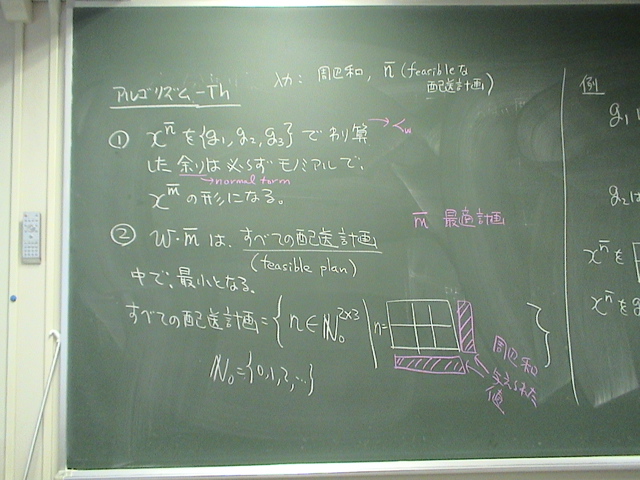 アルゴリズム-Th
入力: 周辺和, n̄ (feasibleな
配送計画)
① x^n̄ を {g₁, g₂, g₃} で わり算 → ≺w
した 余りは 必らず モノミアルで、
→ normal form
x^m̄ の形になる。
② w・m̄ は、すべての配送計画
(feasible plan)
中で、最小となる。
m̄ 最適計画
すべての配送計画 = { n ∈ ℕ₀^2×3 | n= }
周辺和
与えられた
値
ℕ₀ = {0, 1, 2, …}
例
g₁
g₂は
x^n̄ を
x^n̄ を